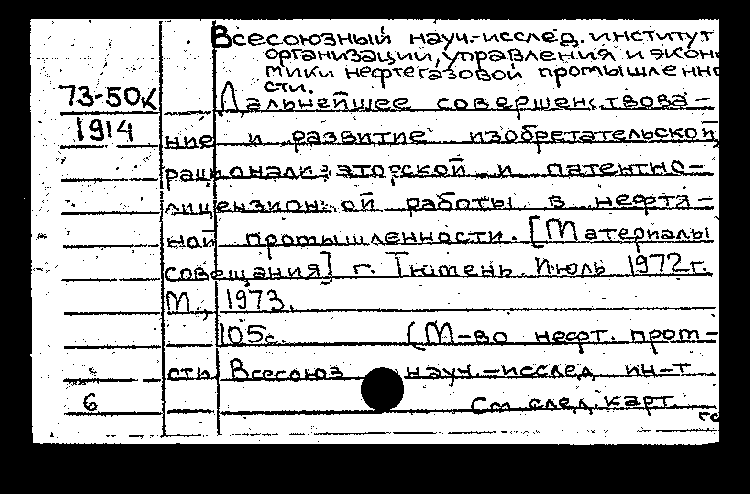 Всесоюзный науч.-исслед. институт
организации, управления и эконо
мики нефтегазовой промышленно
сти.
73-50к
1914
Дальнейшее совершенствова-
ние и развитие изобретательской,
рационализаторской и патентно-
лицензионной работы в нефтя-
ной промышленности. [Материалы
совещания] г. Тюмень. Июль 1972г.
М., 1973.
105с. (М-во нефт. пром-
сти Всесоюз науч.-исслед ин-т
6
См след. карт.